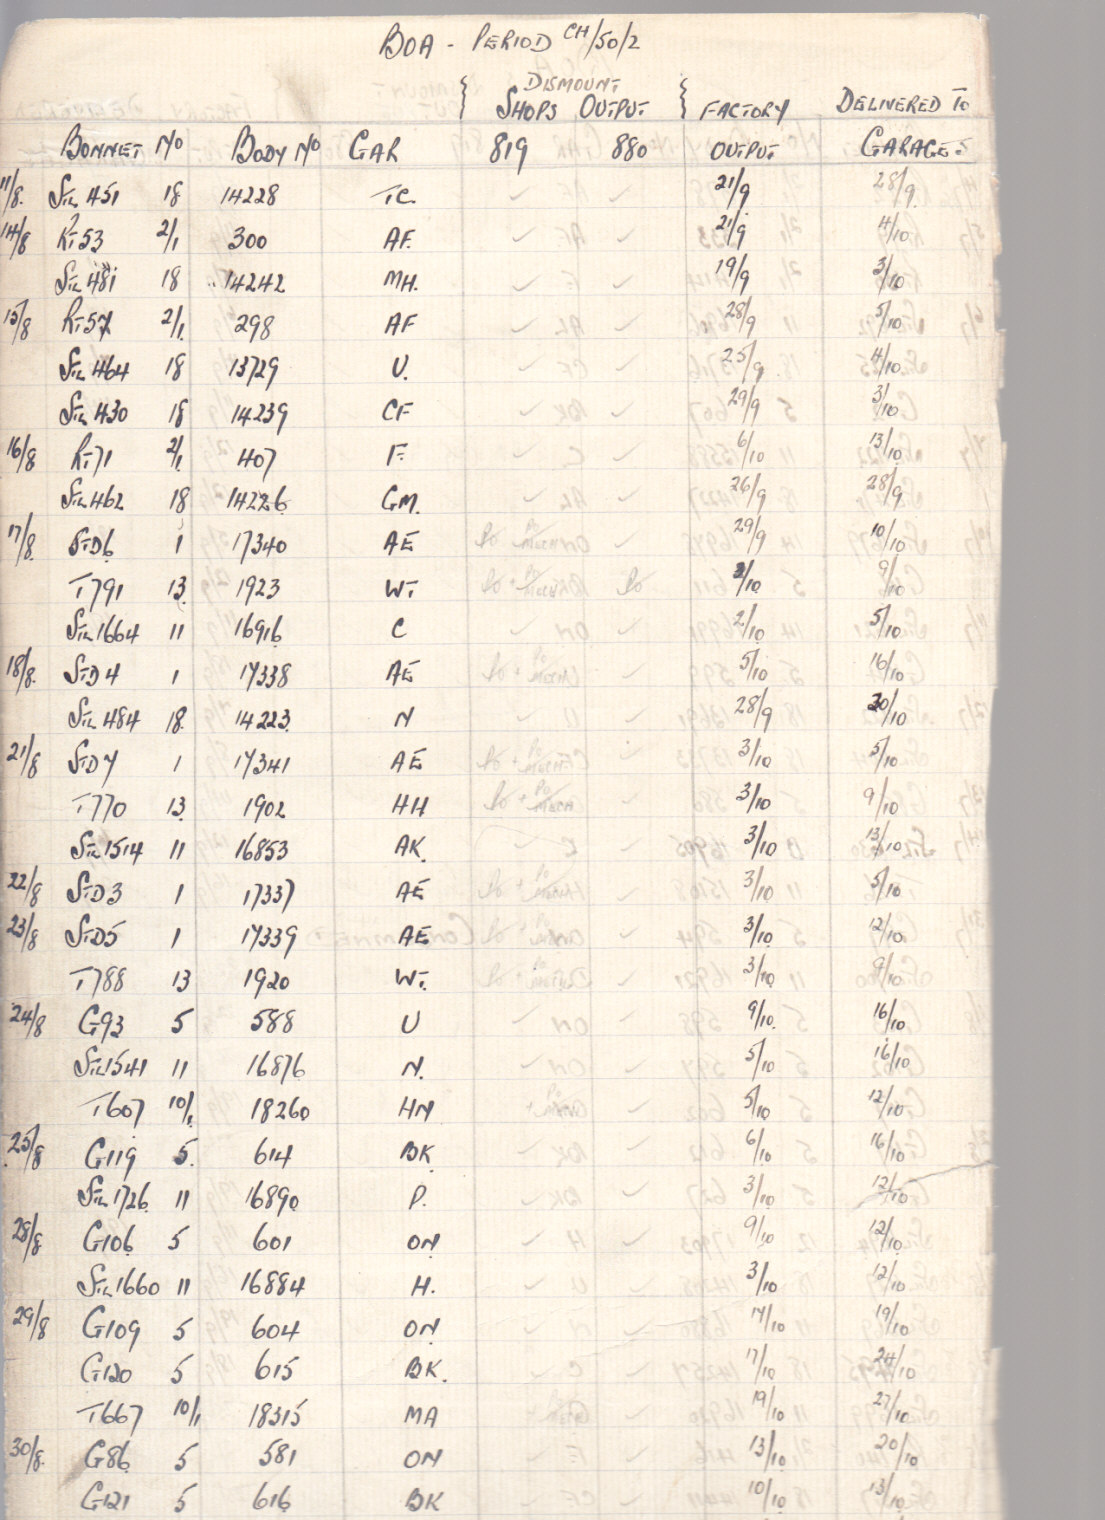 BOA - PERIOD CH/50/2
DISMOUNT
SHOPS OUTPUT FACTORY DELIVERED TO
BONNET NO BODY NO GAR 819 880 OUTPUT GARAGES
11/8. STL 451 18 14228 TC. 21/9 28/9.
14/8 RT53 2/1 300 AF. 21/9 4/10
STL 481 18 14242 MH. 19/9 3/10
15/8 RT57 2/1. 298 AF 28/9 5/10
STL 464 18 13729 U. 25/9 4/10
STL 430 18 14239 CF 29/9 3/10
16/8 RT71 2/1. 407 F. 6/10 13/10
STL 462 18 14226 GM. 26/9 28/9
17/8. STD6 1 17340 AE 29/9 10/10
T791 13 1923 WT 2/10 9/10
STL 1664 11 16916 C 2/10 5/10
18/8. STD4 1 17338 AE 5/10 16/10
STL 484 18. 14223 N 28/9 20/10
21/8 STD7 1 17341 AE 3/10 5/10
T770 13 1902 HH 3/10 9/10
STL 1514 11 16853 AK. 3/10 13/10
22/8 STD3 1 17337 AE 3/10 5/10
23/8 STD5 1 17339 AE 3/10 12/10
T788 13 1920 WT. 3/10 9/10
24/8 G93 5 588 U 9/10 16/10
STL 1541 11 16876 N. 5/10 16/10
T607 10/1 18260 HN 5/10 12/10
25/8 G119 5. 614 BK 6/10 16/10
STL 1726 11 16890 P. 3/10 12/10
28/8 G106 5 601 ON 9/10 12/10
STL 1660 11 16884 H. 3/10 12/10
29/8 G109 5 604 ON 17/10 19/10
G120 5 615 BK. 17/10 24/10
T667 10/1 18315 MA 19/10 27/10
30/8. G86 5 581 ON 13/10 20/10
G121 5 616 BK 10/10 13/10